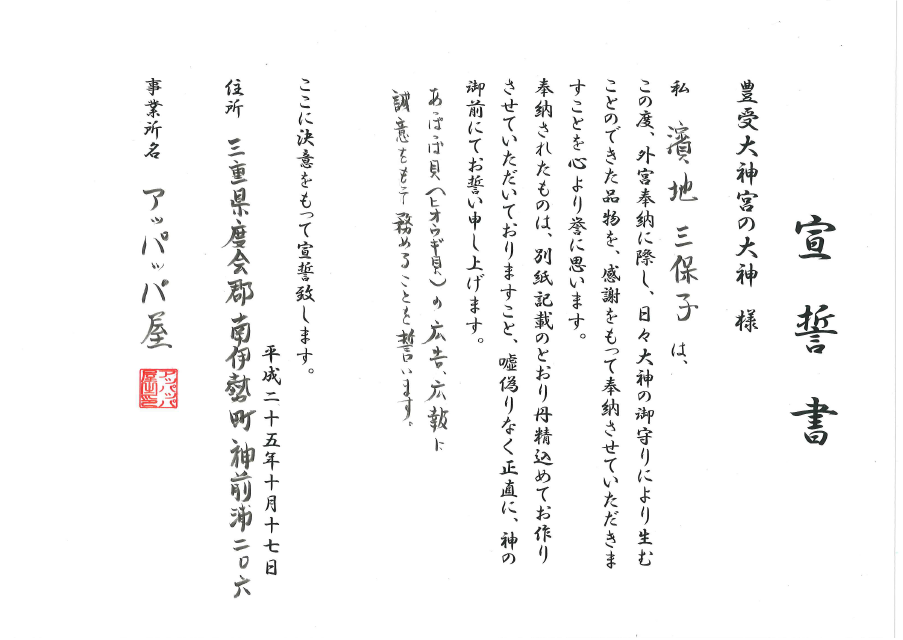 宣誓書
豊受大神宮の大神 様
私 濱地 三保子 は、
この度、外宮奉納に際し、日々大神の御守りにより生む
ことのできた品物を、感謝をもって奉納させていただきま
すことを心より誉に思います。
奉納されたものは、別紙記載のとおり丹精込めてお作り
させていただいておりますこと、嘘偽りなく正直に、神の
御前にてお誓い申し上げます。
あっぱっぱ貝(ヒオウギ貝)の広告、広報に
誠意をもって務めることを誓います。
ここに決意をもって宣誓致します。
平成二十五年十月十七日
住所 三重県度会郡南伊勢町神前浦二〇六
事業所名 アッパッパ屋
アッパッパ屋